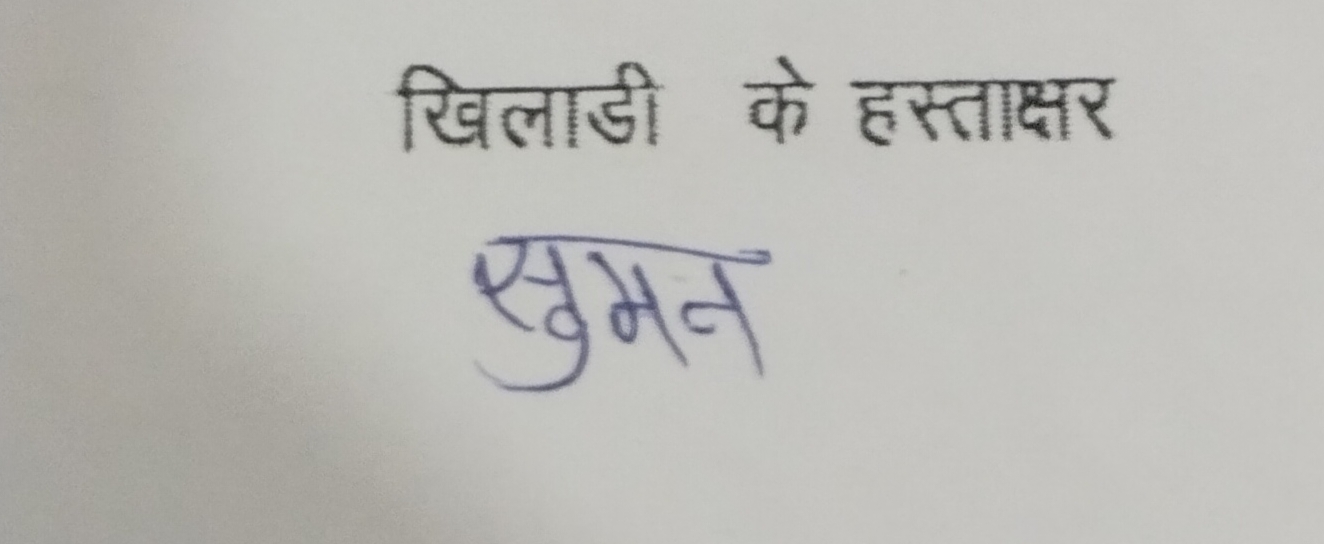 खिलाडी के हस्ताक्षर
सुमन